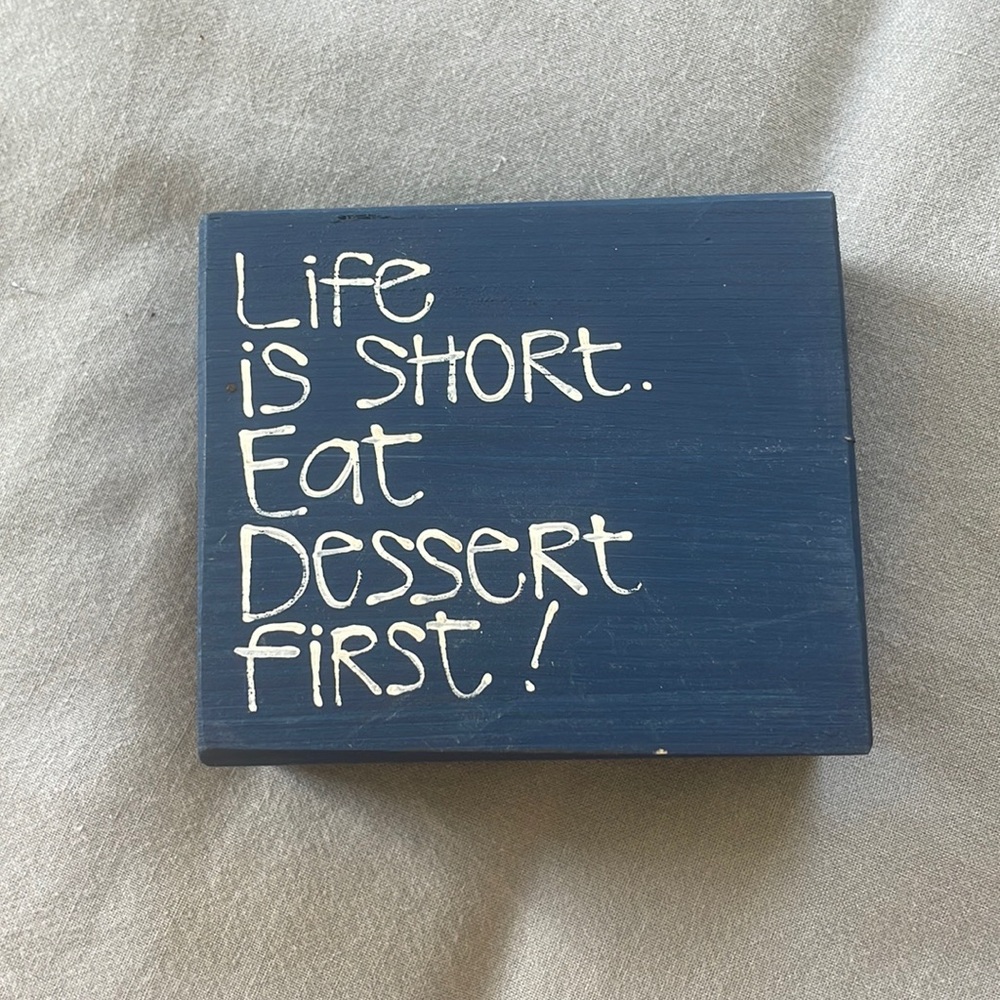 Life
is SHORt.
Eat
DesseRt
fiRst!